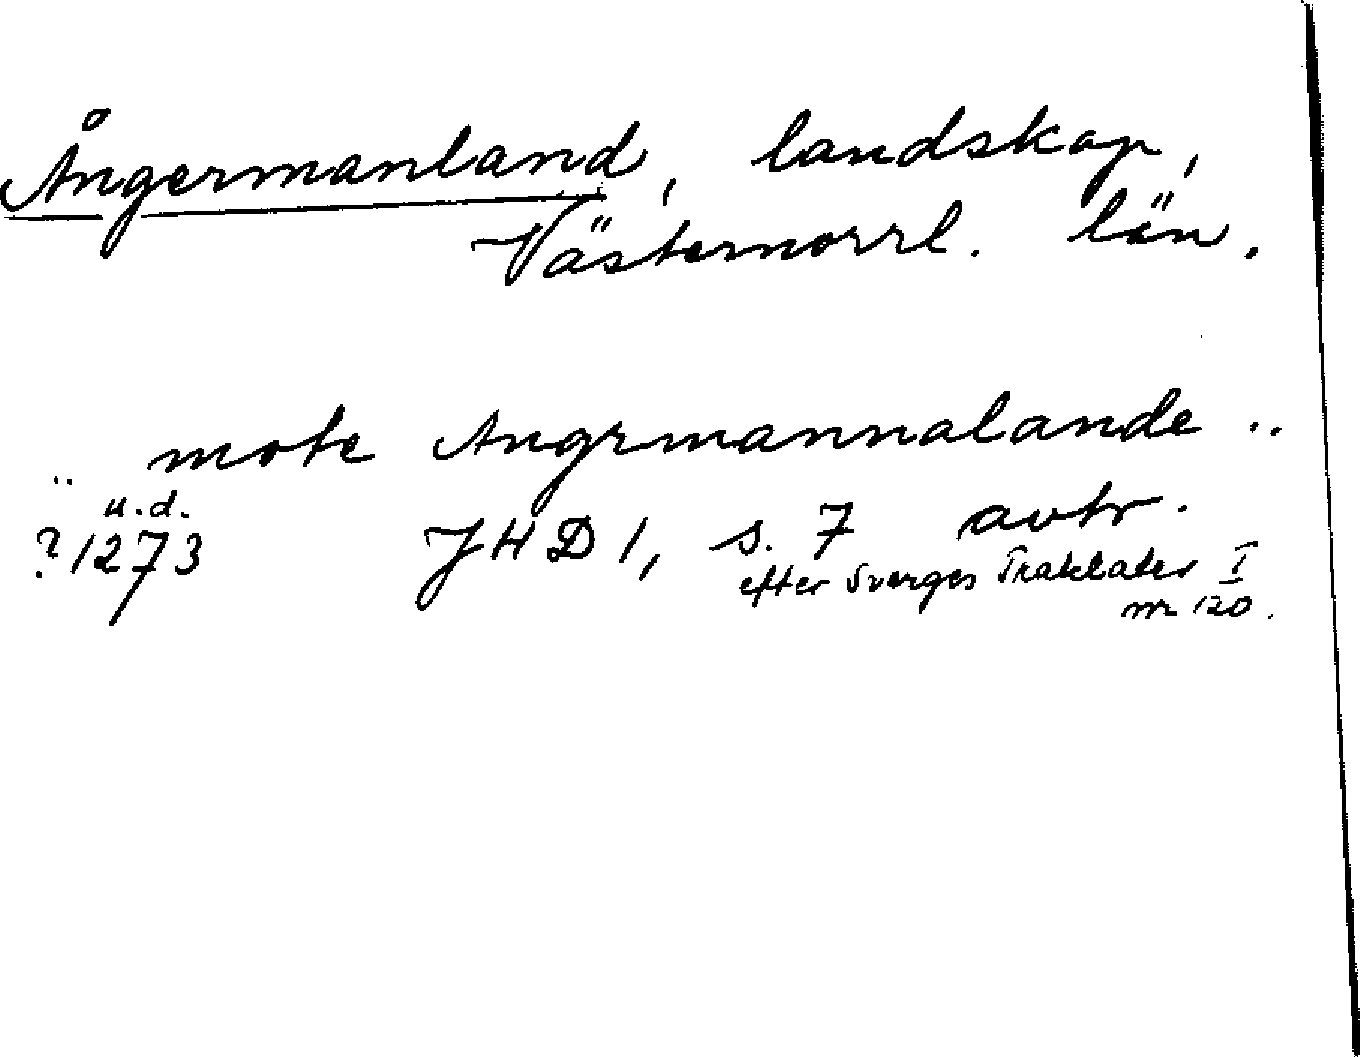 Ångermanland, landskap,
Västernorrl. län.
.. mote Angrmannalande ..
u.d.
? 1273 JHD 1, s. 7 avtr.
efter Sverges Traktater I
nr 120.